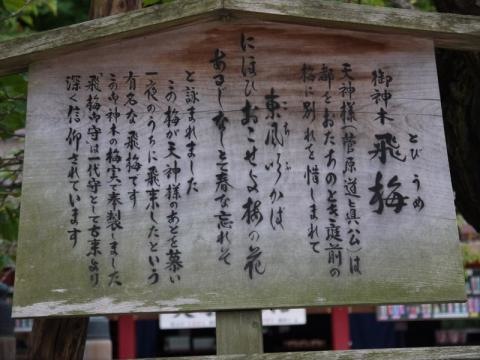 とびうめ
御神木 飛梅
天神様(菅原道真公)は
都をおたちのとき庭前の
梅に別れを惜しまれて
こち
東風ふかば
にほひおこせよ梅の花
あるじなしと春な忘れそ
と詠まれました
この梅が天神様のあとを慕い
一夜のうちに飛来したという
有名な飛梅です
この御神木の梅実で奉製しました
「飛梅御守」は一代守として古来より
深く信仰されています